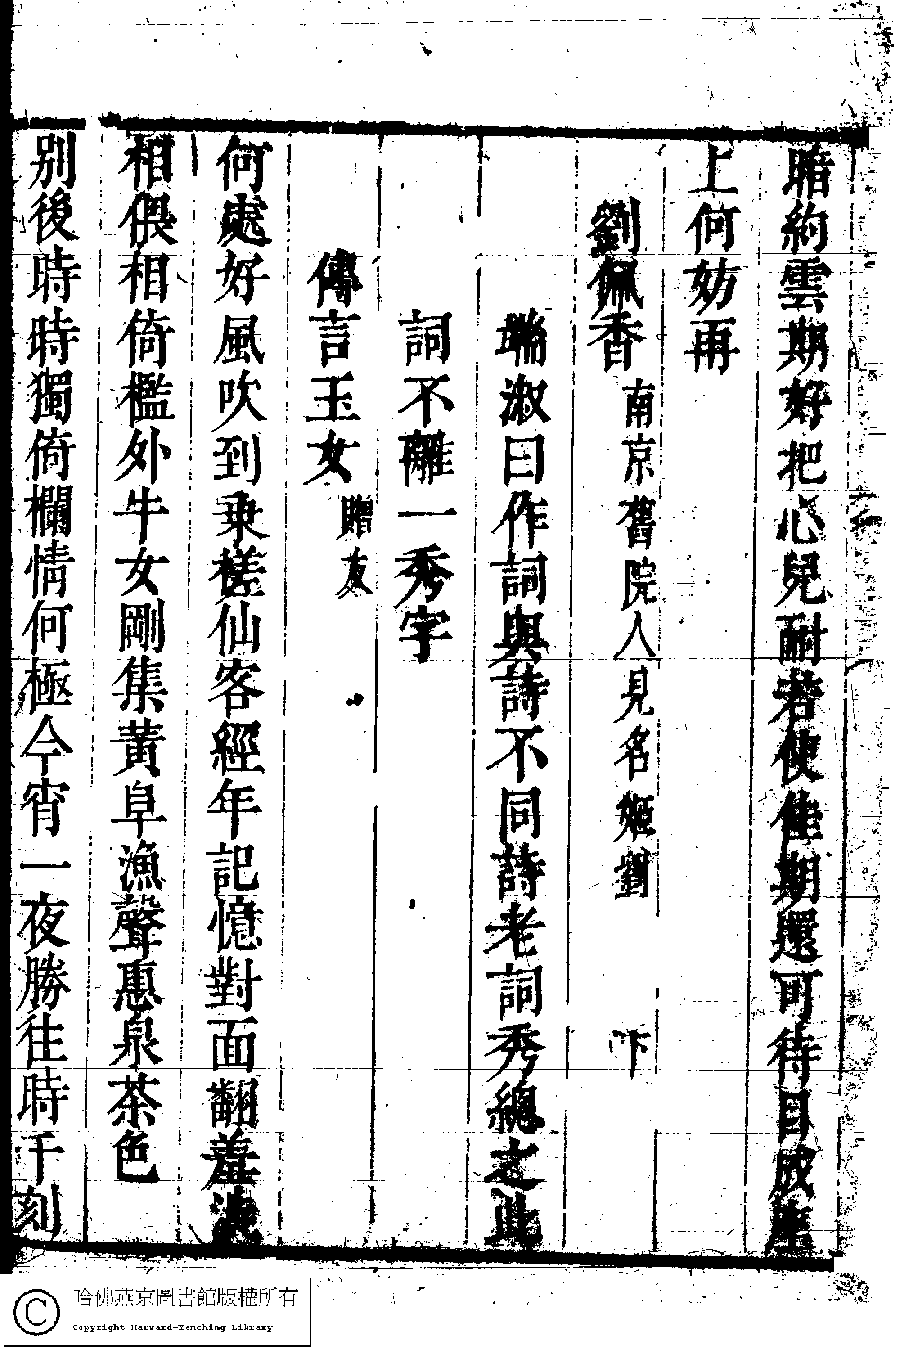 暗約雲期好把心兒耐若使佳期還可待目成座
上何妨再
劉佩香 南京舊院人見名姬劉 下
端淑曰作詞與詩不同詩老詞秀總之此
詞不離一秀字
傳言玉女 贈友
何處好風吹到乗槎仙客經年記憶對面翻羞澁
相偎相倚檻外牛女剛集黃阜漁聲惠泉茶色
别後時時獨倚欄情何極今宵一夜勝往時千刻
哈佛燕京圖書館版權所有
Copyright Harvard-Yenching Library